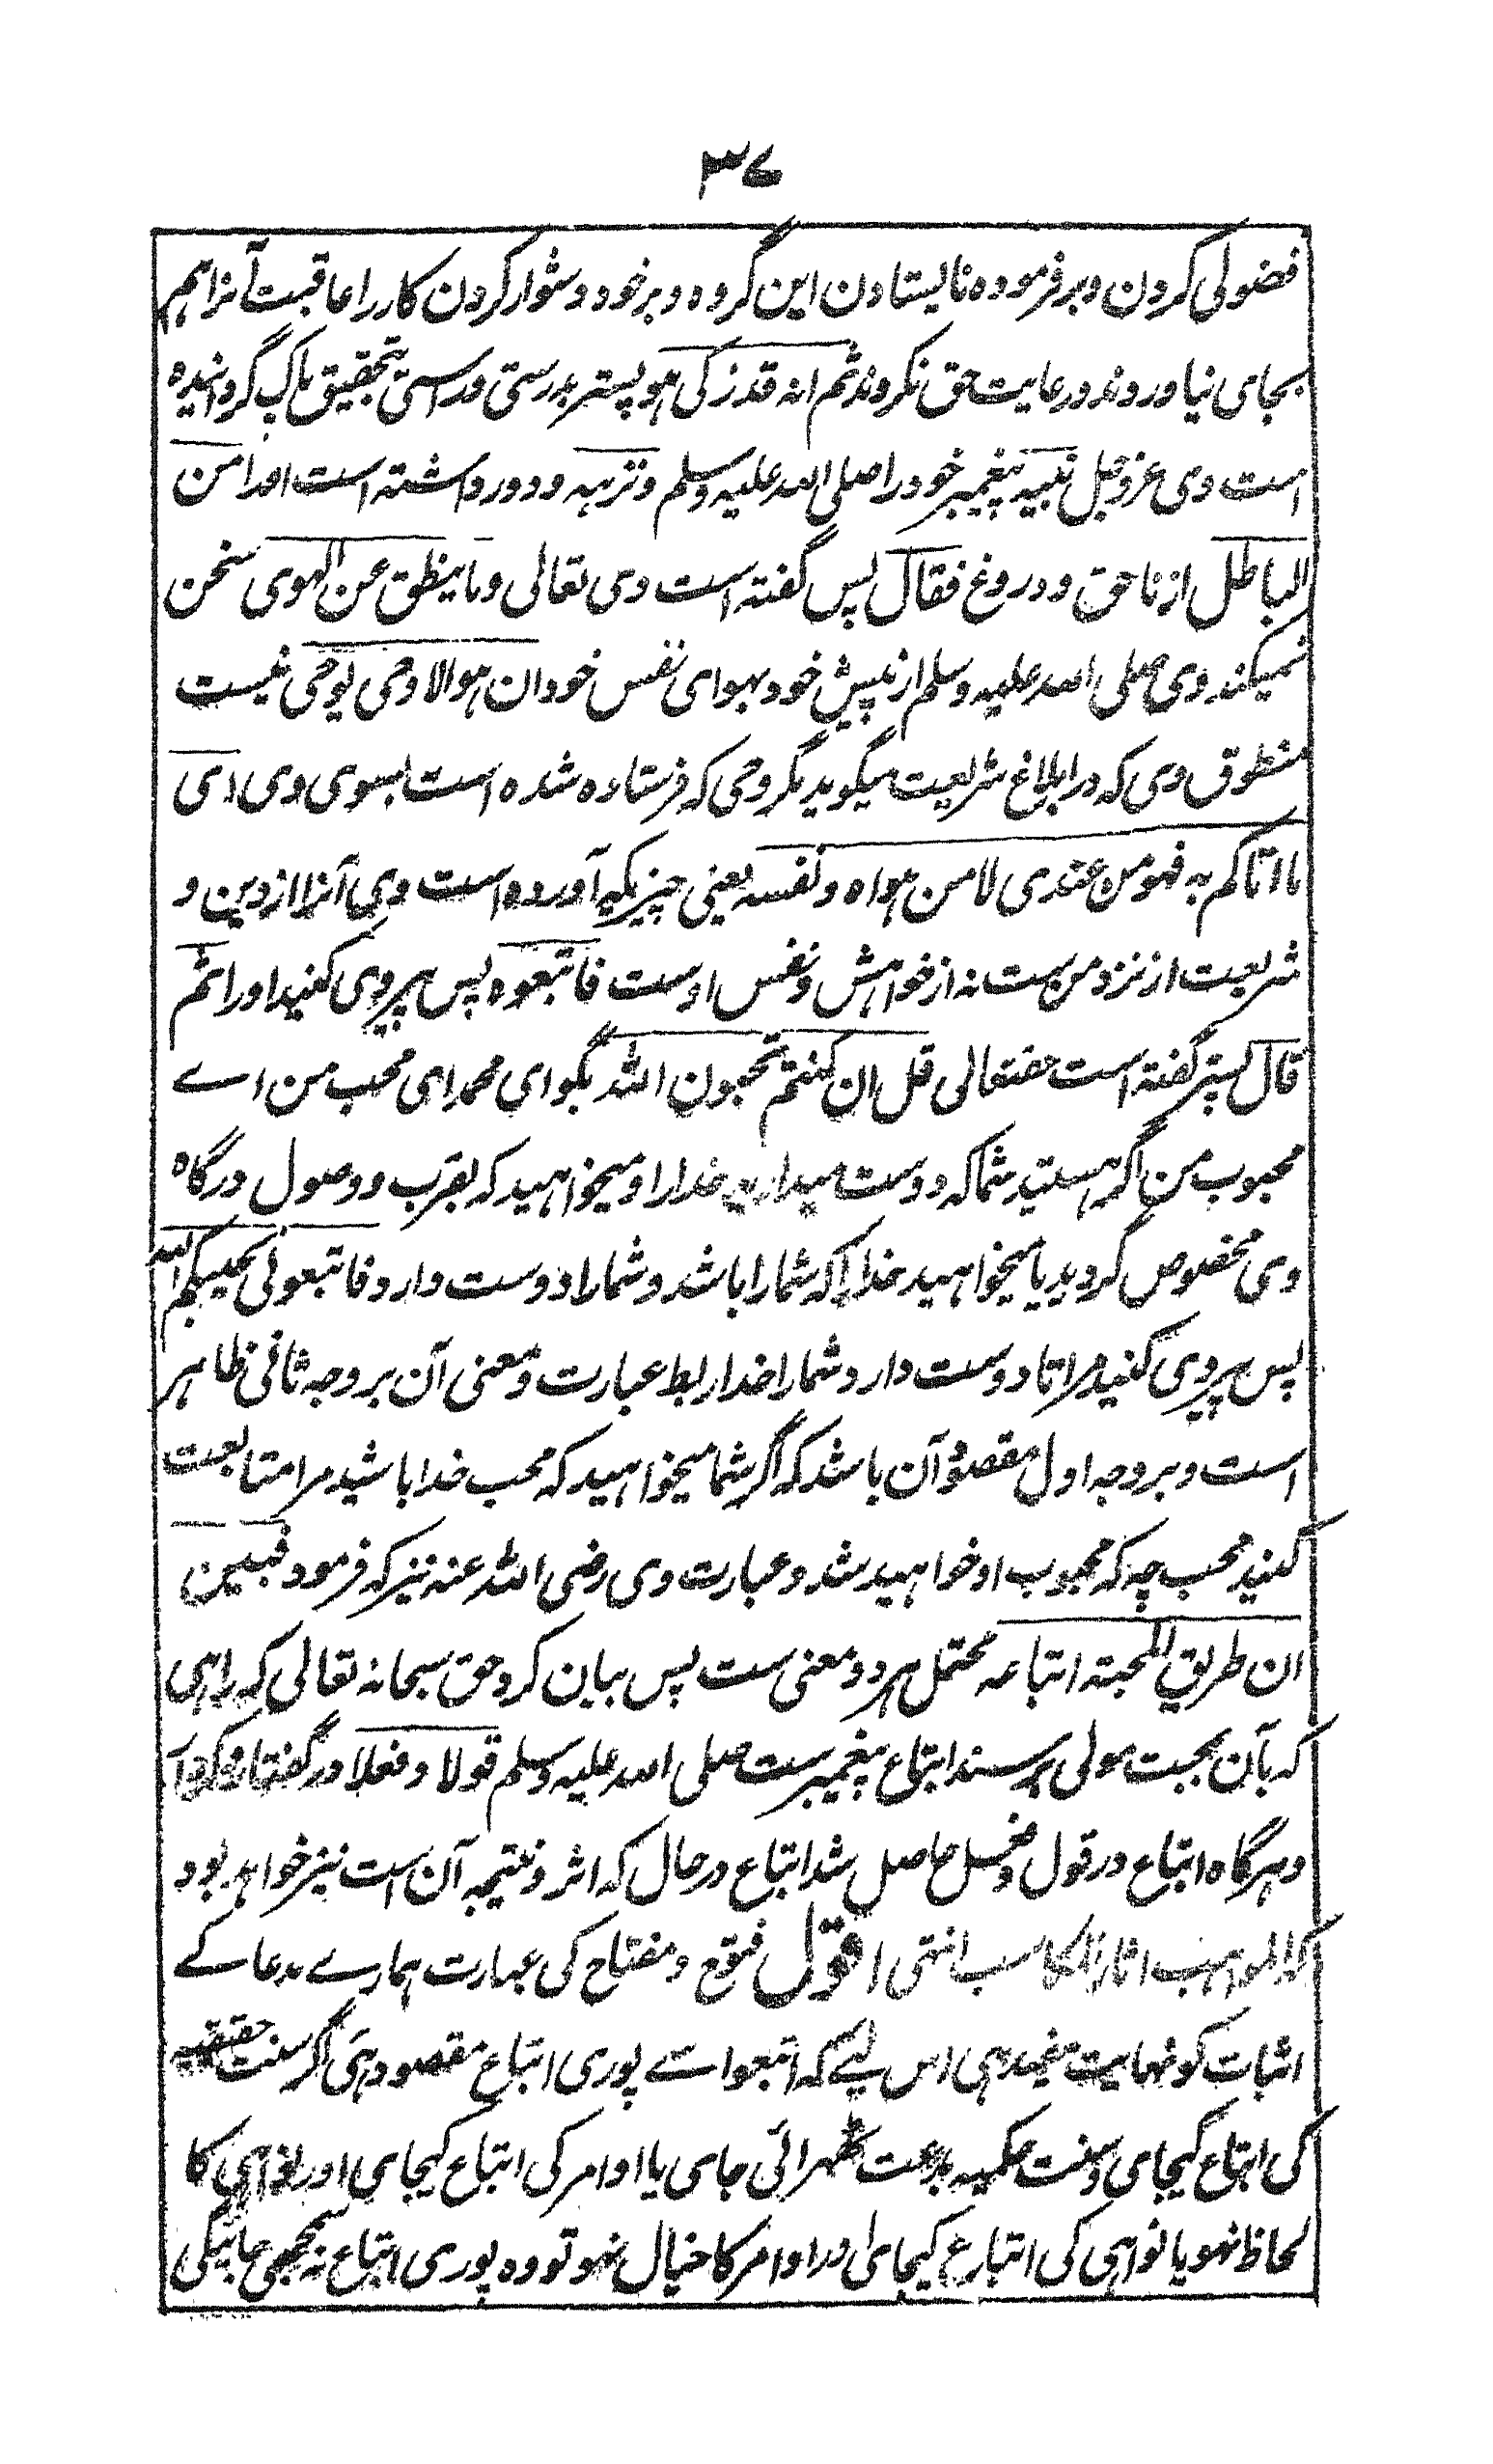 ۳۷
فضولی کردن وبر فرموده نا ایستادن این گروه و بر خود دشوار کردن کار را عاقبت آنرا هم
بجای نیاوردند و رعایت حق نکردند ثم انه قد زکی هو پستر بدرستی و راستی بتحقیق پاک گردانیده
است وی عز و جل نبیه پیغمبر خود را صلی الله علیه وسلم و نزهه و دور داشته است او را من
الباطل از نا حق و دروغ فقال پس گفته است وی تعالی وما ینطق عن الهوی سخن
نمیکند وی صلی الله علیه وسلم از پیش خود بهوای نفس خود ان هو الا وحی یوحی نیست
منطوق وی که در ابلاغ شریعت میگوید مگر وحی که فرستاده شده است بسوی وی ای
ما اتاکم به فهو من عندی لا من هواه و نفسه یعنی چیزیکه آورده است وی آنرا از دین و
شریعت از نزد من ست نه از خواهش و نفس اوست فاتبعوه پس پیروی کنید او را ثم
قال پستر گفته است حقتعالی قل ان کنتم تحبون الله بگو ای محمد ای محب من اے
محبوب من اگر هستید شما که دوست میدارید خدا را و میخواهید که بقرب و وصول درگاه
وی مخصوص گردید یا میخواهید خدا را که شما را باشد و شما را دوست دارد فاتبعونی یحببکم الله
پس پیروی کنید مرا تا دوست دارد شما را خدا ربط عبارت و معنی آن بر وجه ثانی ظاهر
است و بر وجه اول مقصود آن باشد که اگر شما میخواهید که محب خدا باشید مرا متابعت
کنید محب چه که محبوب او خواهید شد و عبارت وی رضی الله عنه نیز که فرمود فبین
ان طریق المحبته اتباعه محتمل هر دو معنی ست پس بیان کرد حق سبحانه تعالی که راهی
که بآن بمحبت مولی برسند اتباع پیغمبرست صلی الله علیه وسلم قولا و فعلا در گفتار و
وهرگاه اتباع در قول و فعل حاصل شد اتباع در حال که اثر و نتیجه آن است نیز خواهد بود
کالمواهب اثار المکاسب انتهی اقول فتوح و مفتاح کی عبارت ہمارے مدعا کے
اثبات کو نہایت مفید ہی اس لیے کہ اتبعوا سے پوری اتباع مقصود ہی اگر سنت حقیقیہ
کی اتباع کیجای و سنت حکمیہ بدعت ٹھرائی جای یا اوامر کی اتباع کیجای اور نواہی کا
لحاظ نہو یا نواہی کی اتباع کیجای اور اوامر کا خیال نہو تو وہ پوری اتباع نہ سمجھی جائیگی